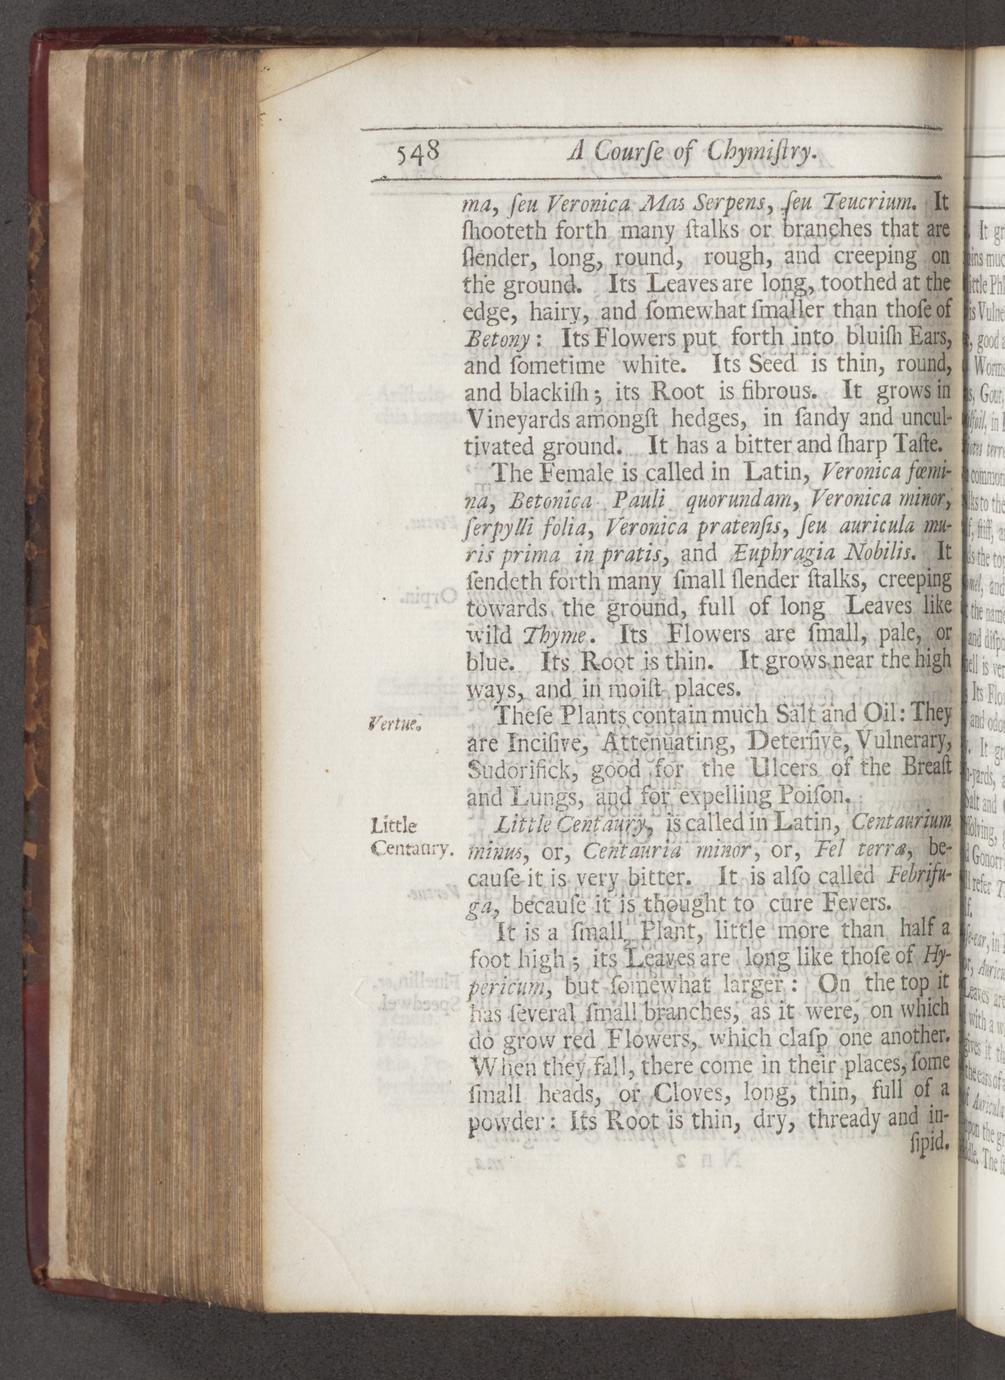 548
A Courſe of Chymiſtry.
ma, ſeu Veronica Mas Serpens, ſeu Teucrium. It
ſhooteth forth many ſtalks or branches that are
ſlender, long, round, rough, and creeping on
the ground. Its Leaves are long, toothed at the
edge, hairy, and ſomewhat ſmaller than thoſe of
Betony: Its Flowers put forth into bluiſh Ears,
and ſometime white. Its Seed is thin, round,
and blackiſh; its Root is fibrous. It grows in
Vineyards amongſt hedges, in ſandy and uncul-
tivated ground. It has a bitter and ſharp Taſte.
The Female is called in Latin, Veronica fœmi-
na, Betonica Pauli quorundam, Veronica minor,
ſerpylli folia, Veronica pratenſis, ſeu auricula mu-
ris prima in pratis, and Euphragia Nobilis. It
ſendeth forth many ſmall ſlender ſtalks, creeping
towards the ground, full of long Leaves like
wild Thyme. Its Flowers are ſmall, pale, or
blue. Its Root is thin. It grows near the high
ways, and in moiſt places.
Vertue.
Theſe Plants contain much Salt and Oil: They
are Inciſive, Attenuating, Deterſive, Vulnerary,
Sudorifick, good for the Ulcers of the Breaſt
and Lungs, and for expelling Poiſon.
Little
Centaury.
Little Centaury, is called in Latin, Centaurium
minus, or, Centauria minor, or, Fel terræ, be-
cauſe it is very bitter. It is alſo called Febrifu-
ga, becauſe it is thought to cure Fevers.
It is a ſmall Plant, little more than half a
foot high; its Leaves are long like thoſe of Hy-
pericum, but ſomewhat larger: On the top it
has ſeveral ſmall branches, as it were, on which
do grow red Flowers, which claſp one another.
When they fall, there come in their places, ſome
ſmall heads, or Cloves, long, thin, full of a
powder: Its Root is thin, dry, thready and in-
ſipid.